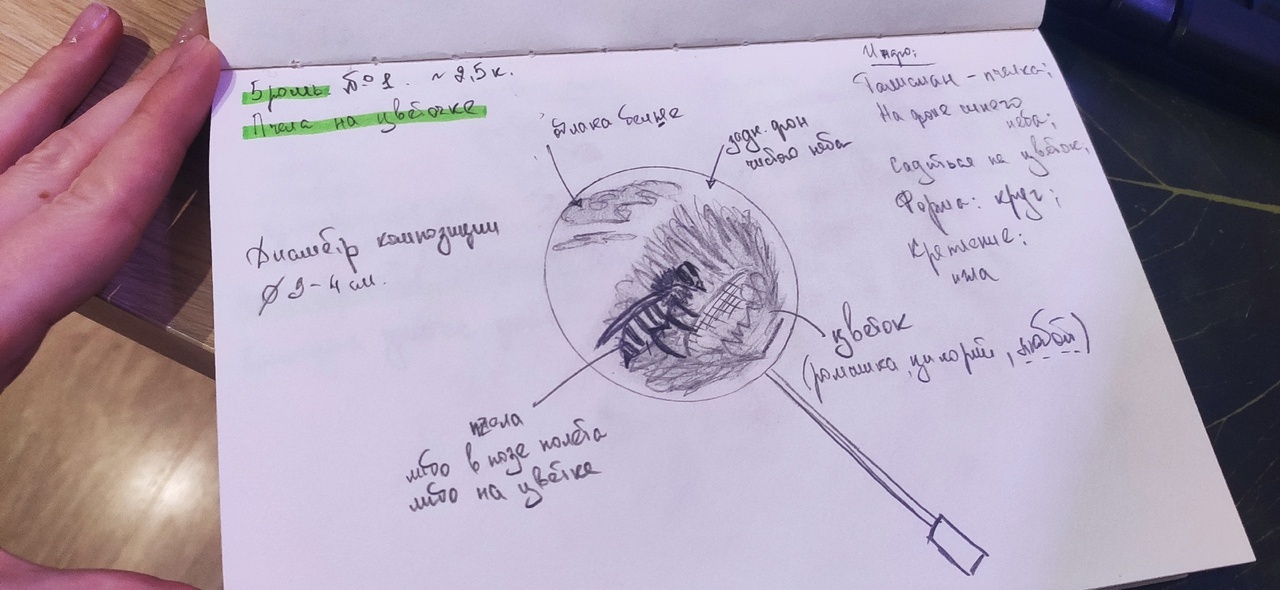 Брошь №1. ~2,5к.
Пчела на цветочке
Диаметр композиции
⌀ 3-4 см.
облака белые
задн. фон
чистого неба
Инфо:
Талисман - пчелка;
На фоне синего
неба;
Садиться на цветок,
Форма: круг;
Крепление:
игла
цветок
(ромашка, цикорий, любой)
пчела
либо в позе полёта
либо на цветке